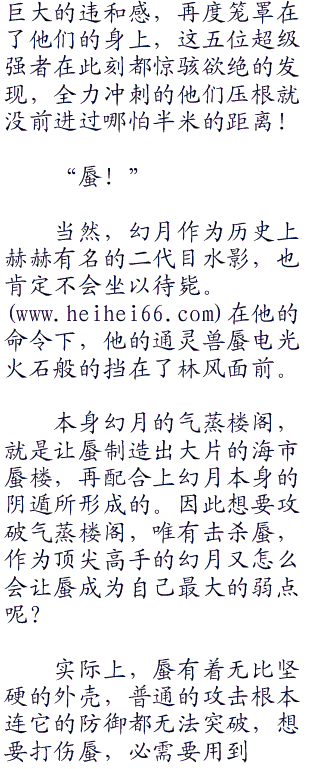 巨大的违和感，再度笼罩在
了他们的身上，这五位超级
强者在此刻都惊骇欲绝的发
现，全力冲刺的他们压根就
没前进过哪怕半米的距离！
“蜃！”
当然，幻月作为历史上
赫赫有名的二代目水影，也
肯定不会坐以待毙。
(www.heihei66.com)在他的
命令下，他的通灵兽蜃电光
火石般的挡在了林风面前。
本身幻月的气蒸楼阁，
就是让蜃制造出大片的海市
蜃楼，再配合上幻月本身的
阴遁所形成的。因此想要攻
破气蒸楼阁，唯有击杀蜃，
作为顶尖高手的幻月又怎么
会让蜃成为自己最大的弱点
呢？
实际上，蜃有着无比坚
硬的外壳，普通的攻击根本
连它的防御都无法突破，想
要打伤蜃，必需要用到